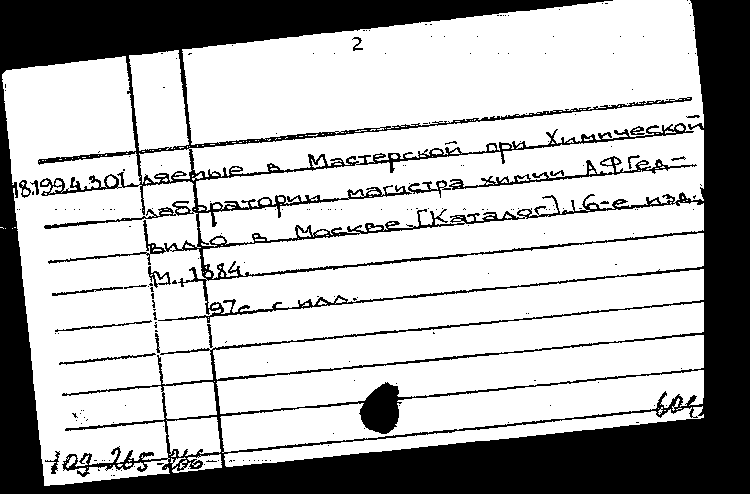 2
18.199.4.301. ляемые в Мастерской при Химической
лаборатории магистра химии А.Ф.Гед-
вилло в Москве.[Каталог].16-е изд.,
М.,1884.
97с. с илл.
109-265-266